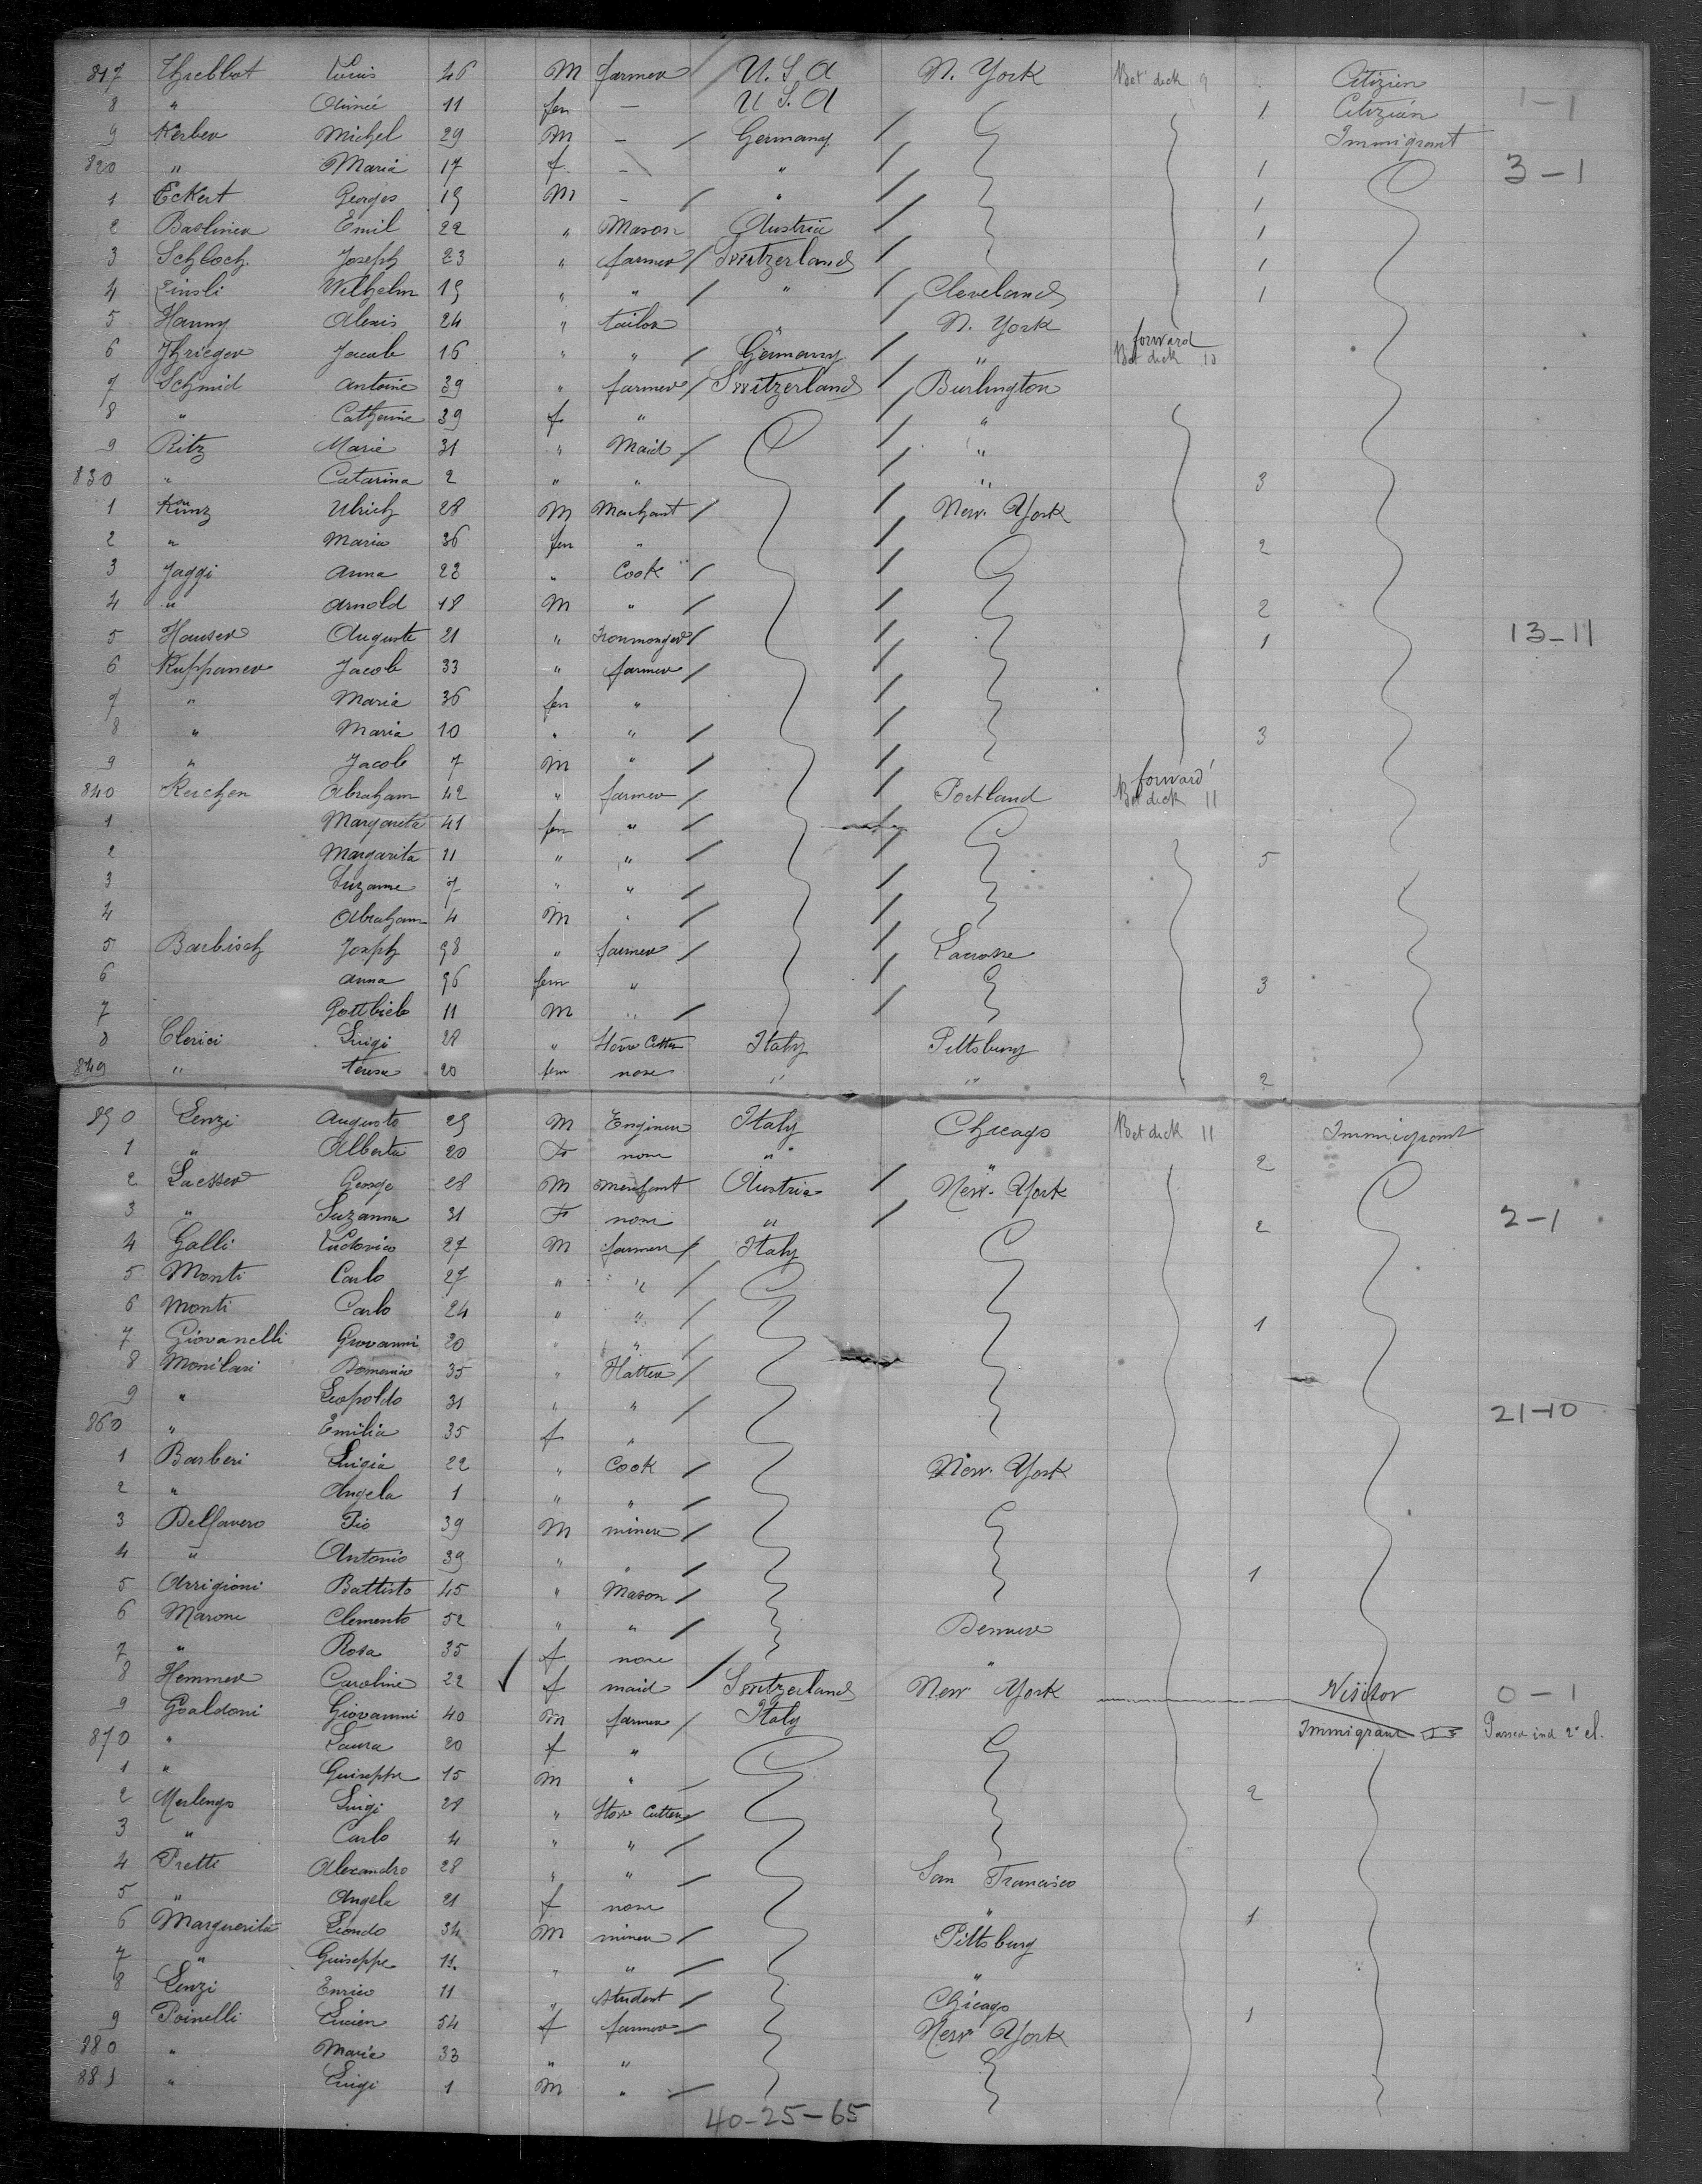 817 Threbbot Louis 46 M farmer U.S.A N. York Bet deck 9 Citizien
8 " Aimée 11 fem — U S. A 1 Citizien 1-1
9 Kerber Michel 29 M — Germany Immigrant
820 " Maria 17 f — " 1 3-1
1 Eckert Georges 19 M — " 1
2 Emil 22 " Mason Austria 1
3 Schloch Joseph 23 " farmer Switzerland 1
4 Wilhelm 19 " " " Cleveland 1
5 Hanny Alexis 24 " tailor " N. York
forward
6 Jacob 16 " " Germany " Bet deck 10
7 Schmid Antoine 39 " farmer Switzerland Burlington
8 " Catherine 39 f " "
9 Ritz Marie 31 " Maid "
830 " Catarina 2 " " " 3
1 Künz Ulrich 28 M Marchant New. York
2 " Maria 36 fem " 2
3 Jaggi Anna 22 " Cook
4 " Arnold 18 M " 2
5 Hauser Auguste 21 " Ironmonger 1 13-11
6 Kuppaner Jacob 33 " farmer
7 " Maria 36 fem "
8 " Maria 10 " " 3
9 " Jacob 7 M "
forward
840 Abraham 42 " farmer Portland Bet deck 11
1 Margarita 41 fem "
2 Margarita 11 " " 5
3 Suzanne 7 " "
4 Abraham 4 M "
5 Barbisch Joseph 98 " farmer Lacrosse
6 Anna 96 fem " 3
7 Gottlieb 11 M "
8 Clerici Luigi 28 " Stone Cutter Italy Pittsburg
849 " Teresa 20 fem none " " 2
850 Lenzi Augusto 29 M Engineer Italy Chicago Bet deck 11 Immigrant
1 " Alberta 20 F none " " 2
2 Laesser George 28 M Austria New-York
3 " Suzanna 31 F none " 2 2-1
4 Galli Ludovico 27 M farmer Italy
5 Monti Carlo 27 " "
6 Monti Carlo 24 " " 1
7 Giovanelli Giovanni 20 " "
8 Domenico 35 " Hatter
9 " Leopoldo 31 " " 21-10
860 " Emilia 35 f "
1 Barberi Luigia 22 " Cook New. York
2 " Angela 1 " "
3 Delfavero Pio 39 M miner
4 " Antonio 39 " " 1
5 Arrigioni Battisto 45 " Mason
6 Marone Clemento 52 " " Denver
7 " Rosa 35 f none "
8 Hemmer Caroline 22 f maid Switzerland New York Visitor 0-1
9 Gualdoni Giovanni 40 M farmer Italy Immigrant
870 " Laura 20 f "
1 " Guiseppe 15 M "
2 Merlengo Luigi 28 " Stone Cutter 2
3 " Carlo 4 " "
4 Pretti Alexandro 28 " " San Francisco
5 " Angela 21 f none " 1
6 Marguerita 34 M miner Pittsburg
7 " Guiseppe 11. " " "
8 Lenzi Enrico 11 " student Chicago
9 Poinelli Lucien 54 f farmer New York 1
880 " Marie 33 " "
881 " Luigi 1 M "
40-25-65